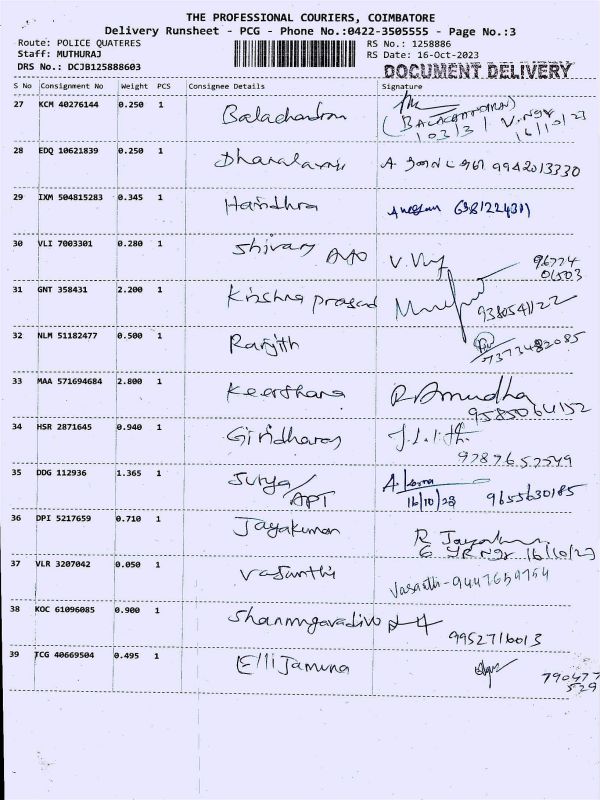 THE PROFESSIONAL COURIERS, COIMBATORE
Delivery Runsheet - PCG - Phone No.:0422-3505555 - Page No.:3
Route: POLICE QUATERES RS No.: 1258886
Staff: MUTHURAJ RS Date: 16-Oct-2023
DRS No.: DCJB125888603 DOCUMENT DELIVERY
S No Consignment No Weight PCS Consignee Details Signature
27 KCM 40276144 0.250 1 Balachandran
16/10/23
28 EDQ 10621839 0.250 1 9942013330
29 IXM 504815283 0.345 1 Haridhra
30 VLI 7003301 0.280 1
31 GNT 358431 2.200 1 Krishna prasad
32 NLM 51182477 0.500 1 Ranjith 7373482085
33 MAA 571694684 2.800 1 Keerthana R. Amudha
9585064152
34 HSR 2871645 0.940 1 Giridharan
9787657549
35 DDG 112936 1.365 1 Surya
/APT 16/10/23 9655630185
36 DPI 5217659 0.710 1 Jayakumar R
16/10/23
37 VLR 3207042 0.050 1 Vasanthi
Vasanth-9447659754
38 KOC 61096085 0.900 1 Shanmugavadivo
9952716013
39 TCG 40669504 0.495 1 Elli Jamuna
790477
529